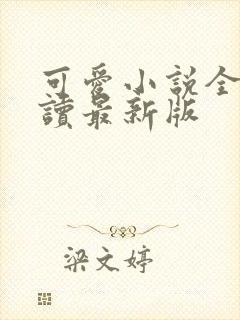 可愛小說全
讀最新版
梁文婷